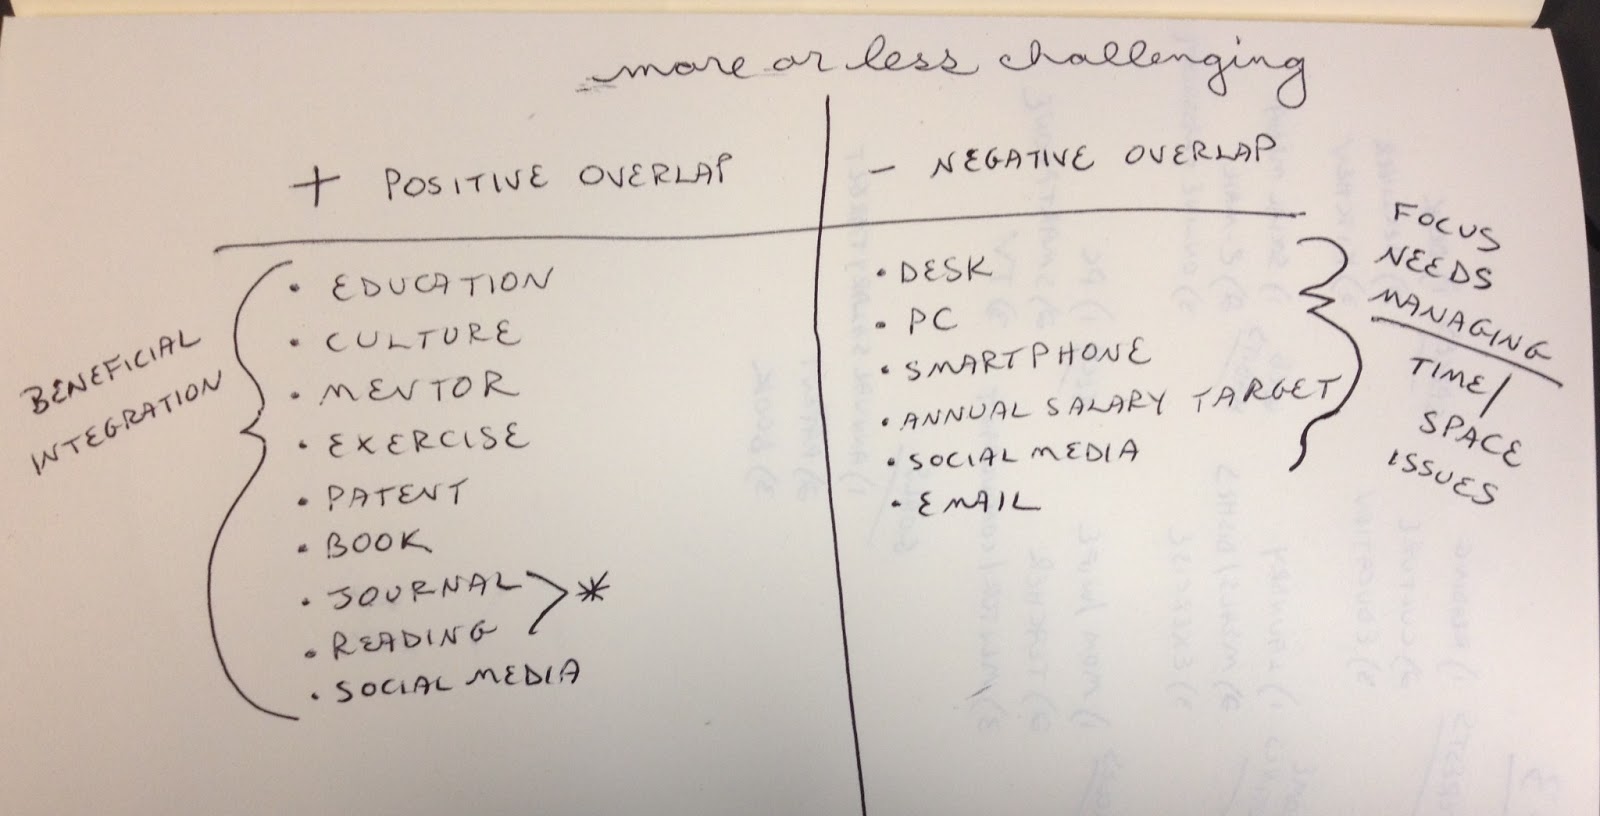 more or less challenging
+ POSITIVE OVERLAP
- NEGATIVE OVERLAP
BENEFICIAL
INTEGRATION
• EDUCATION
• CULTURE
• MENTOR
• EXERCISE
• PATENT
• BOOK
• JOURNAL
• READING
*
• SOCIAL MEDIA
• DESK
• PC
• SMARTPHONE
• ANNUAL SALARY TARGET
• SOCIAL MEDIA
• EMAIL
FOCUS
NEEDS
MANAGING
TIME/
SPACE
ISSUES